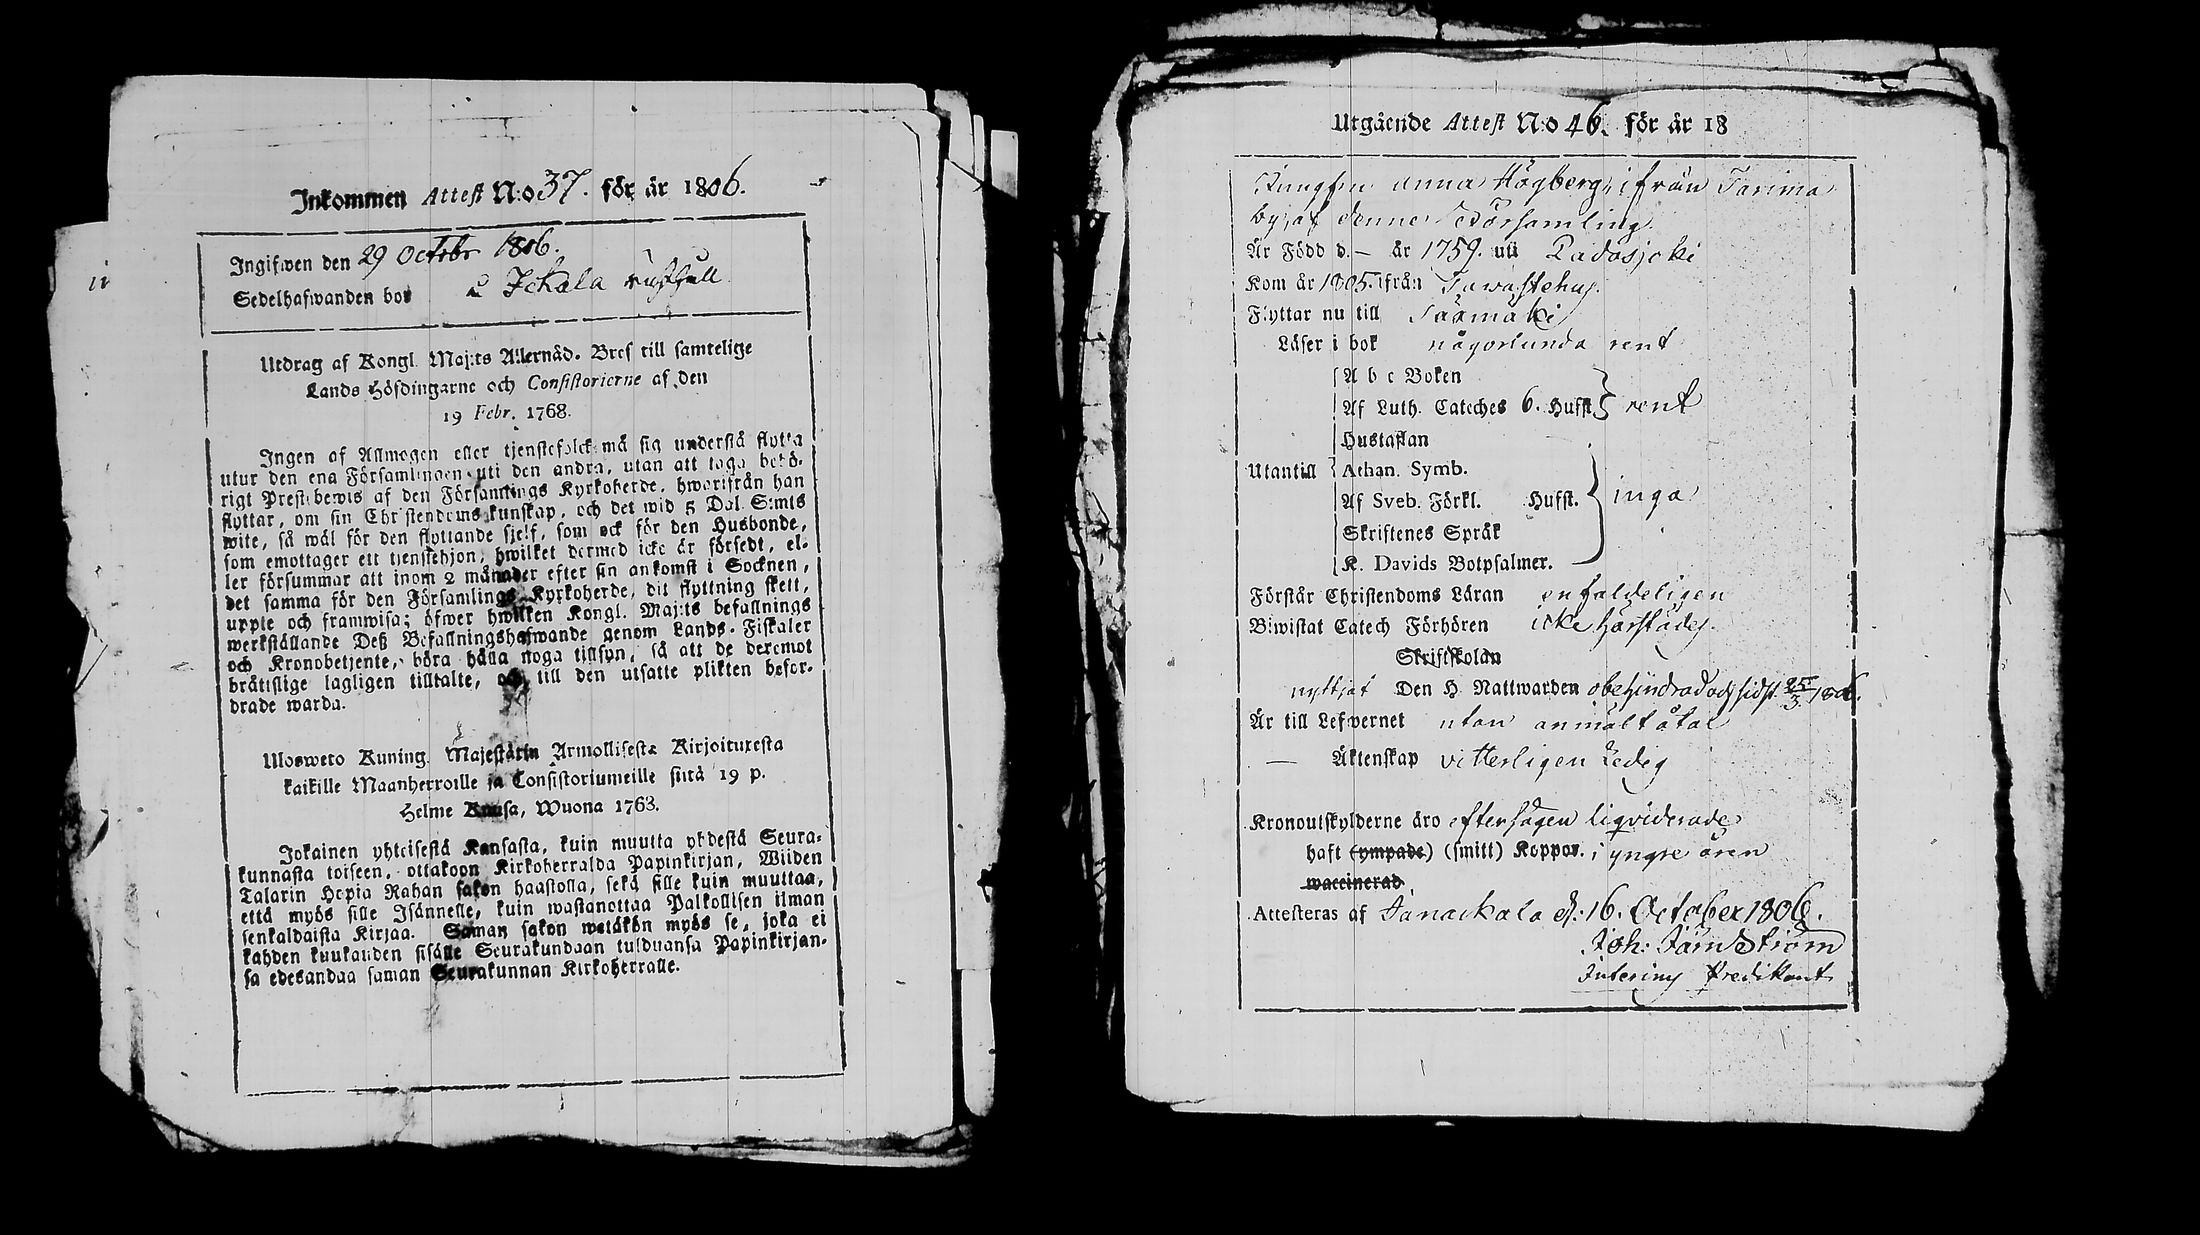 Inkommen Attest N:o 37. för år 1806.
Ingifwen den 29 Octobr 1806.
Sedelhafwanden bor å Ichala
Utdrag af Kongl. Maj:ts Allernåd. Bref till samtelige
Lands Höfdingarne och Consistorierne af den
19 Febr. 1768.
Ingen af Allmogen eller tjenstefolck må sig understå flytta
utur den ena Församlingen uti den andra, utan att taga behö-
rigt Prestbewis af den Församlings Kyrkoherde, hwarifrån han
flyttar, om sin Christendoms kunskap, och det wid 5 Dal. S:mts
wite, så wäl för den flyttande sjelf, som ock för den Husbonde,
som emottager ett tjenstehjon, hwilket dermed icke är försedt, el-
ler försummar att inom 2 månader efter sin ankomst i Socknen,
det samma för den Församlings Kyrkoherde, dit flyttning skett,
uppte och framwisa; öfwer hwilken Kongl. Maj:ts befallnings
werkställande Deß Befallningshafwande genom Lands-Fiskaler
och Kronobetjente, böra hålla noga tillsyn, så att de deremot
bråttslige lagligen tilltalte, och till den utsatte plikten befor-
drade warda.
Ulosweto Kuning. Majestätin Armollisesta Kirjoituxesta
kaikille Maanherroille ja Consistoriumeille siitä 19 p.
Helme Kuusa, Wuona 1763.
Jokainen yhteisestä Kansasta, kuin muutta yhdestä Seura-
kunnasta toiseen, ottakoon Kirkoherralda Papinkirjan, Wiiden
Talarin Hopia Rahan sakon haastolla, sekä sille kuin muuttaa,
että myös sille Isännelle, kuin wastanottaa Palkollisen ilman
senkaldaista Kirjaa. Saman sakon wetäkön myös se, joka ei
kahden kuukauden sisälle Seurakundaan tulduansa Papinkirjan-
sa edesandaa saman Seurakunnan Kirkoherralle.
Utgående Attest N:o 46. för år 18
Jungfru Anna Högberg, ifrån Tarima
by, af denne Församling
Är Född d. — år 1759. uti Padasjoki
Kom år 1805. ifrån Tawastehus.
Flyttar nu till Säxmäki
Läser i bok någorlunda rent
A b c Boken
Af Luth. Cateches 6. Hufst. rent
Hustaflan
Utantill Athan. Symb.
Af Sveb. Förkl. Hufst. inga
Skriftenes Språk
K. Davids Botpsalmer.
Förstår Christendoms Läran enfaldeligen
Biwistat Catech Förhören icke härstädes.
Skriftskolan
nyttjat Den H. Nattwarden obehindrad och sidst 25/3 1806.
Är till Lefwernet utan anmält åtal
— Äktenskap vitterligen Ledig
Kronoutskylderne äro eftersägen liqviderade
haft (ympade) (smitt) Koppor. i yngre åren
waccinerad
Attesteras af Janackala d: 16. October 1806.
Joh: Järnström
Interims Predikant